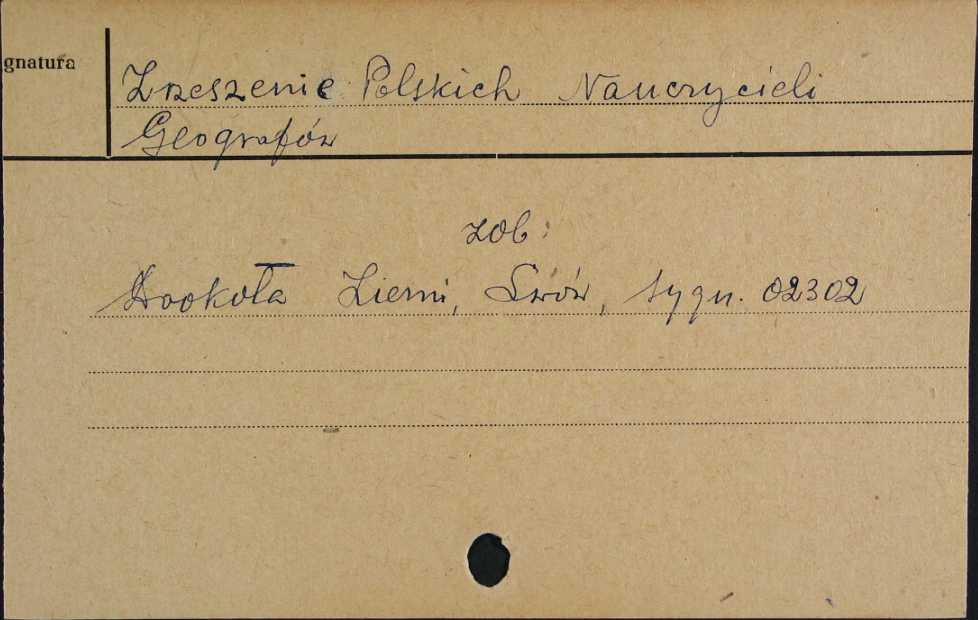 gnatura
Zrzeszenie Polskich Nauczycieli
Geografów
zob:
Dookoła Ziemi, Lwów, sygn. 02302